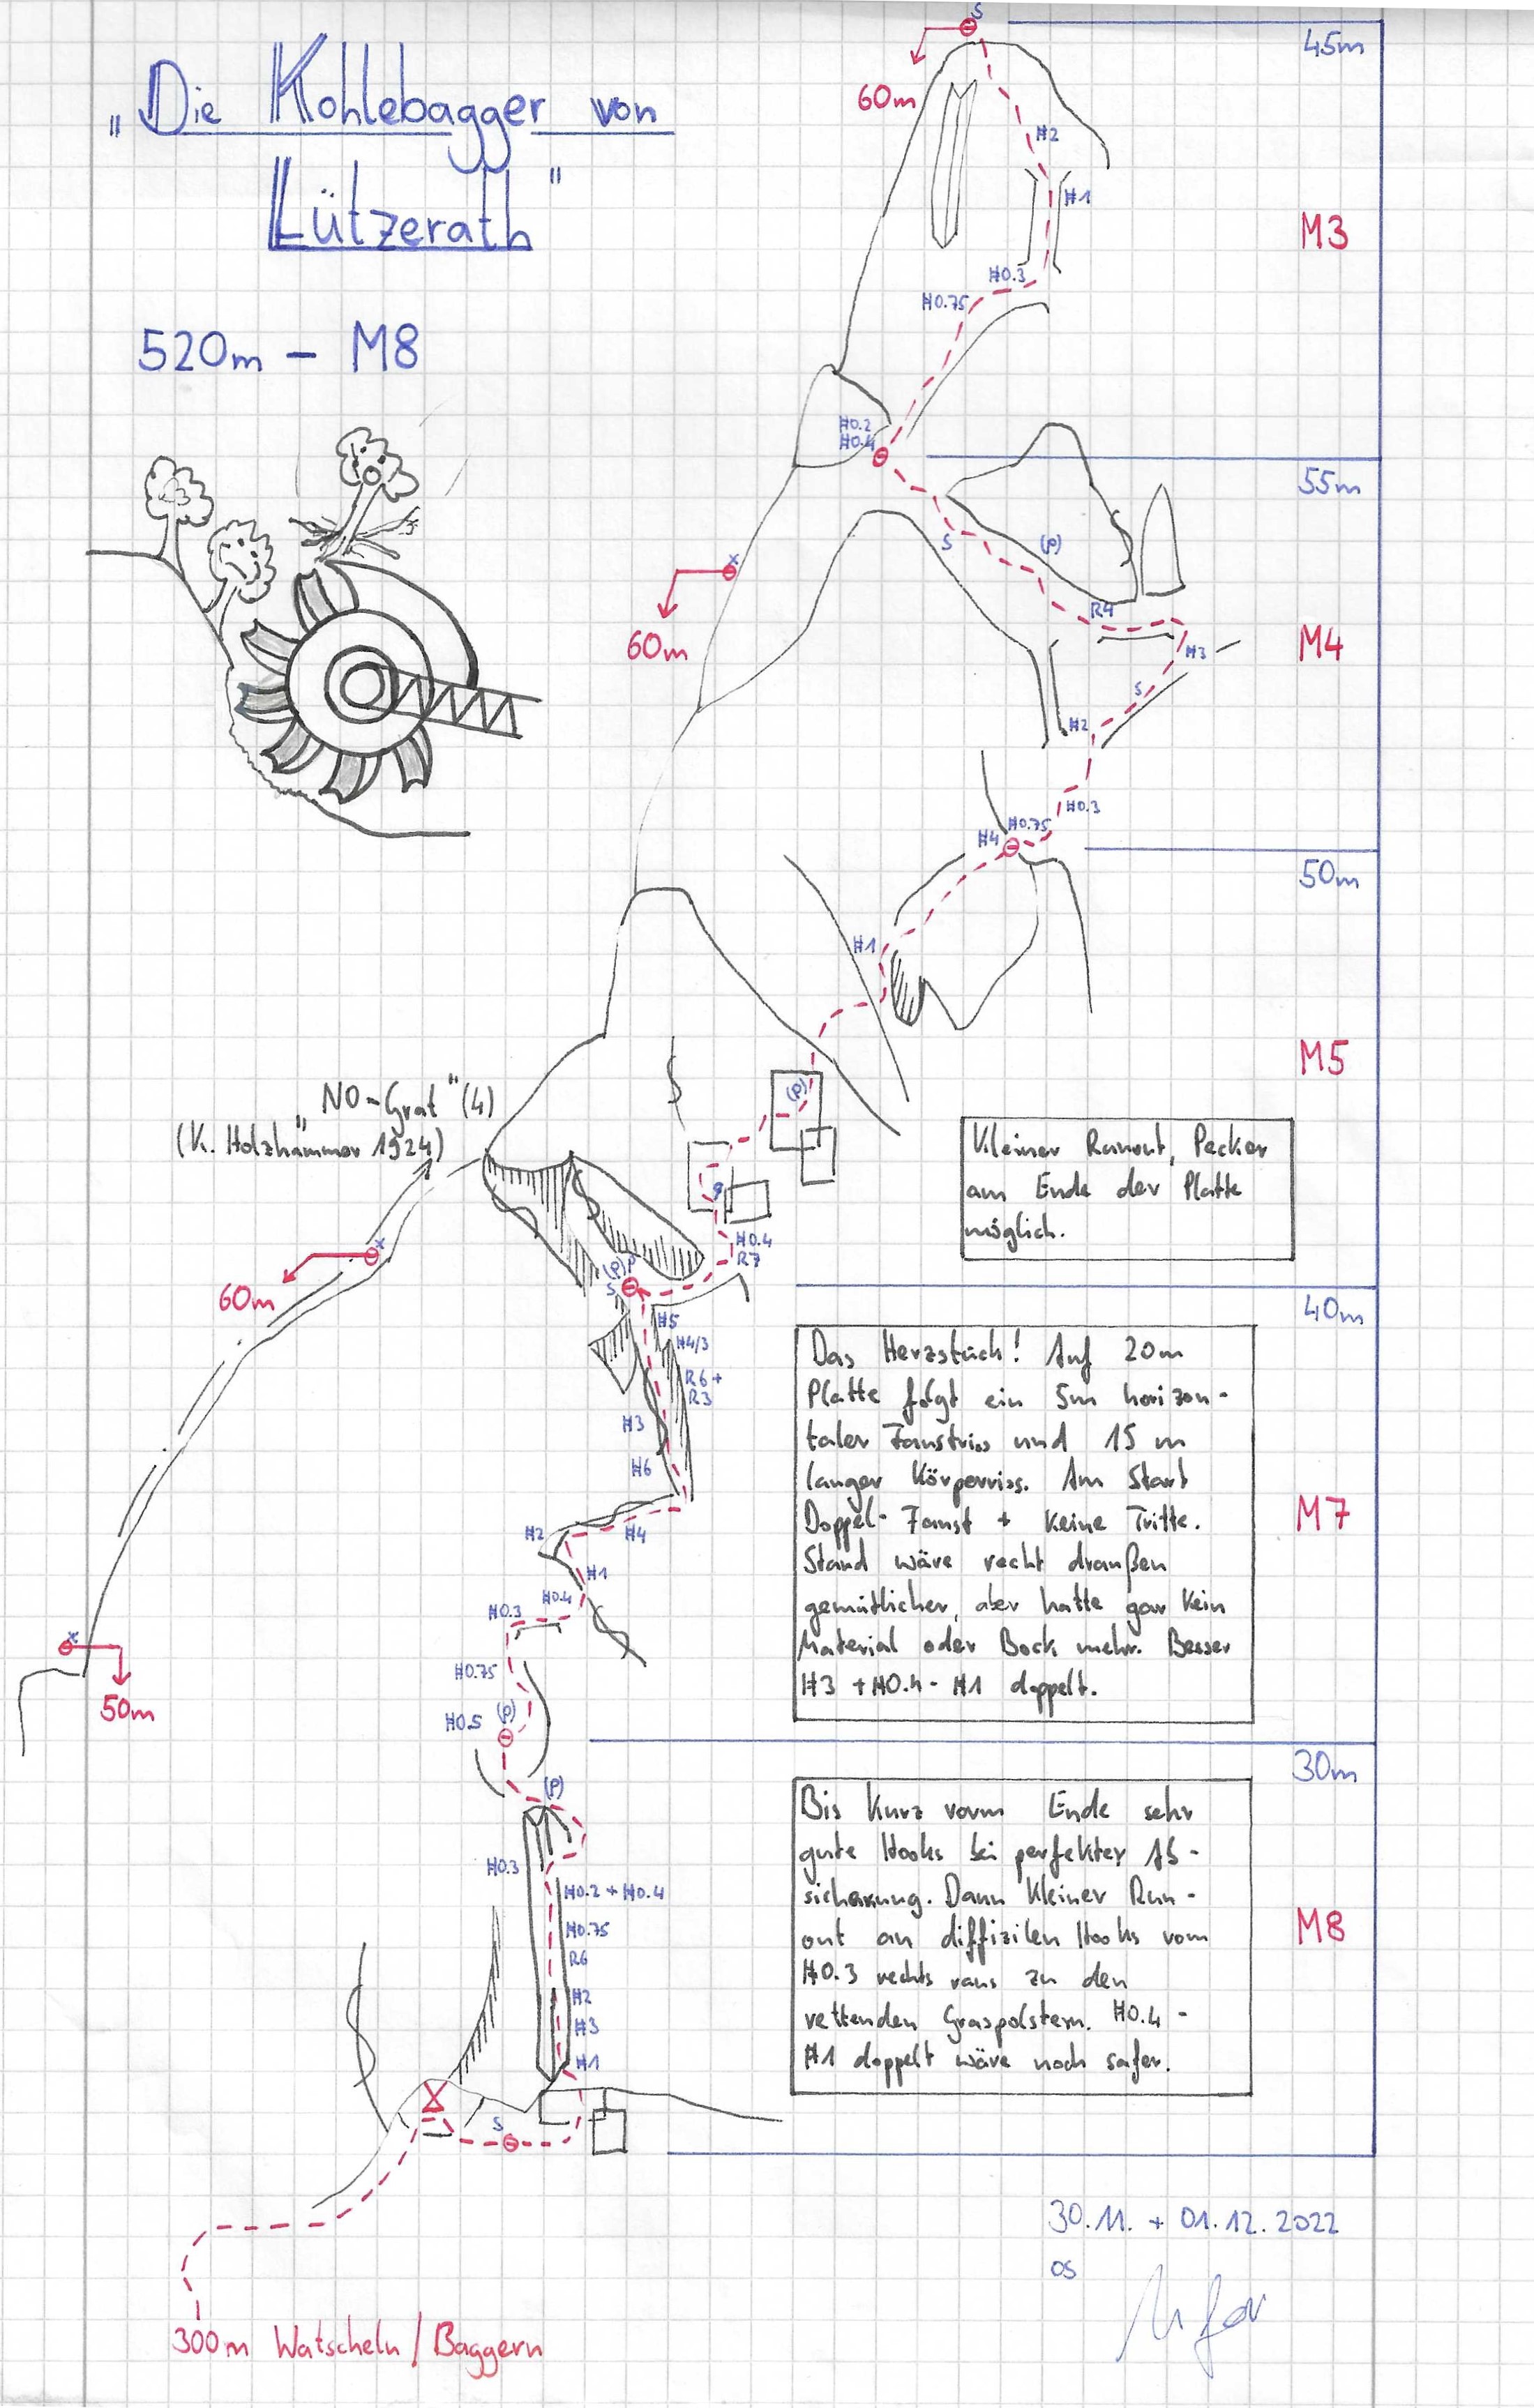 „Die Kohlebagger von
Lützerath"
520m - M8
S
45m
60m
H2
H1
M3
H0.3
H0.75
H0.2
H0.4
55m
S
(P)
x
60m
R4
H3
M4
S
H2
H0.3
H0.75
H4
50m
H1
M5
(P)
„NO-Grat" (4)
(K. Holzhammer 1924)
Kleiner Runout, Pecker
am Ende der Platte
möglich.
P
H0.4
R7
x
60m
(P) P
S
40m
H5
H4/3
R6+
R3
H3
H6
H2
H4
H1
H0.4
H0.3
H0.75
(P)
H0.5
Das Herzstück! Auf 20m
Platte folgt ein 5m horizon-
taler Faustriss und 15 m
langer Körperriss. Am Start
Doppel-Faust + keine Tritte.
Stand wäre recht draußen
gemütlicher, aber hatte gar kein
Material oder Bock mehr. Besser
H3 + H0.4 - H1 doppelt.
M7
x
50m
30m
(P)
H0.3
H0.2 + H0.4
H0.75
R6
H2
H3
H1
Bis kurz vorm Ende sehr
gute Hooks bei perfekter Ab-
sicherung. Dann kleiner Run-
out an diffizilen Hooks vom
H0.3 rechts raus zu den
rettenden Graspolstern. H0.4 -
H1 doppelt wäre noch safer.
M8
S
30.11. + 01.12.2022
OS
300m Watscheln / Baggern